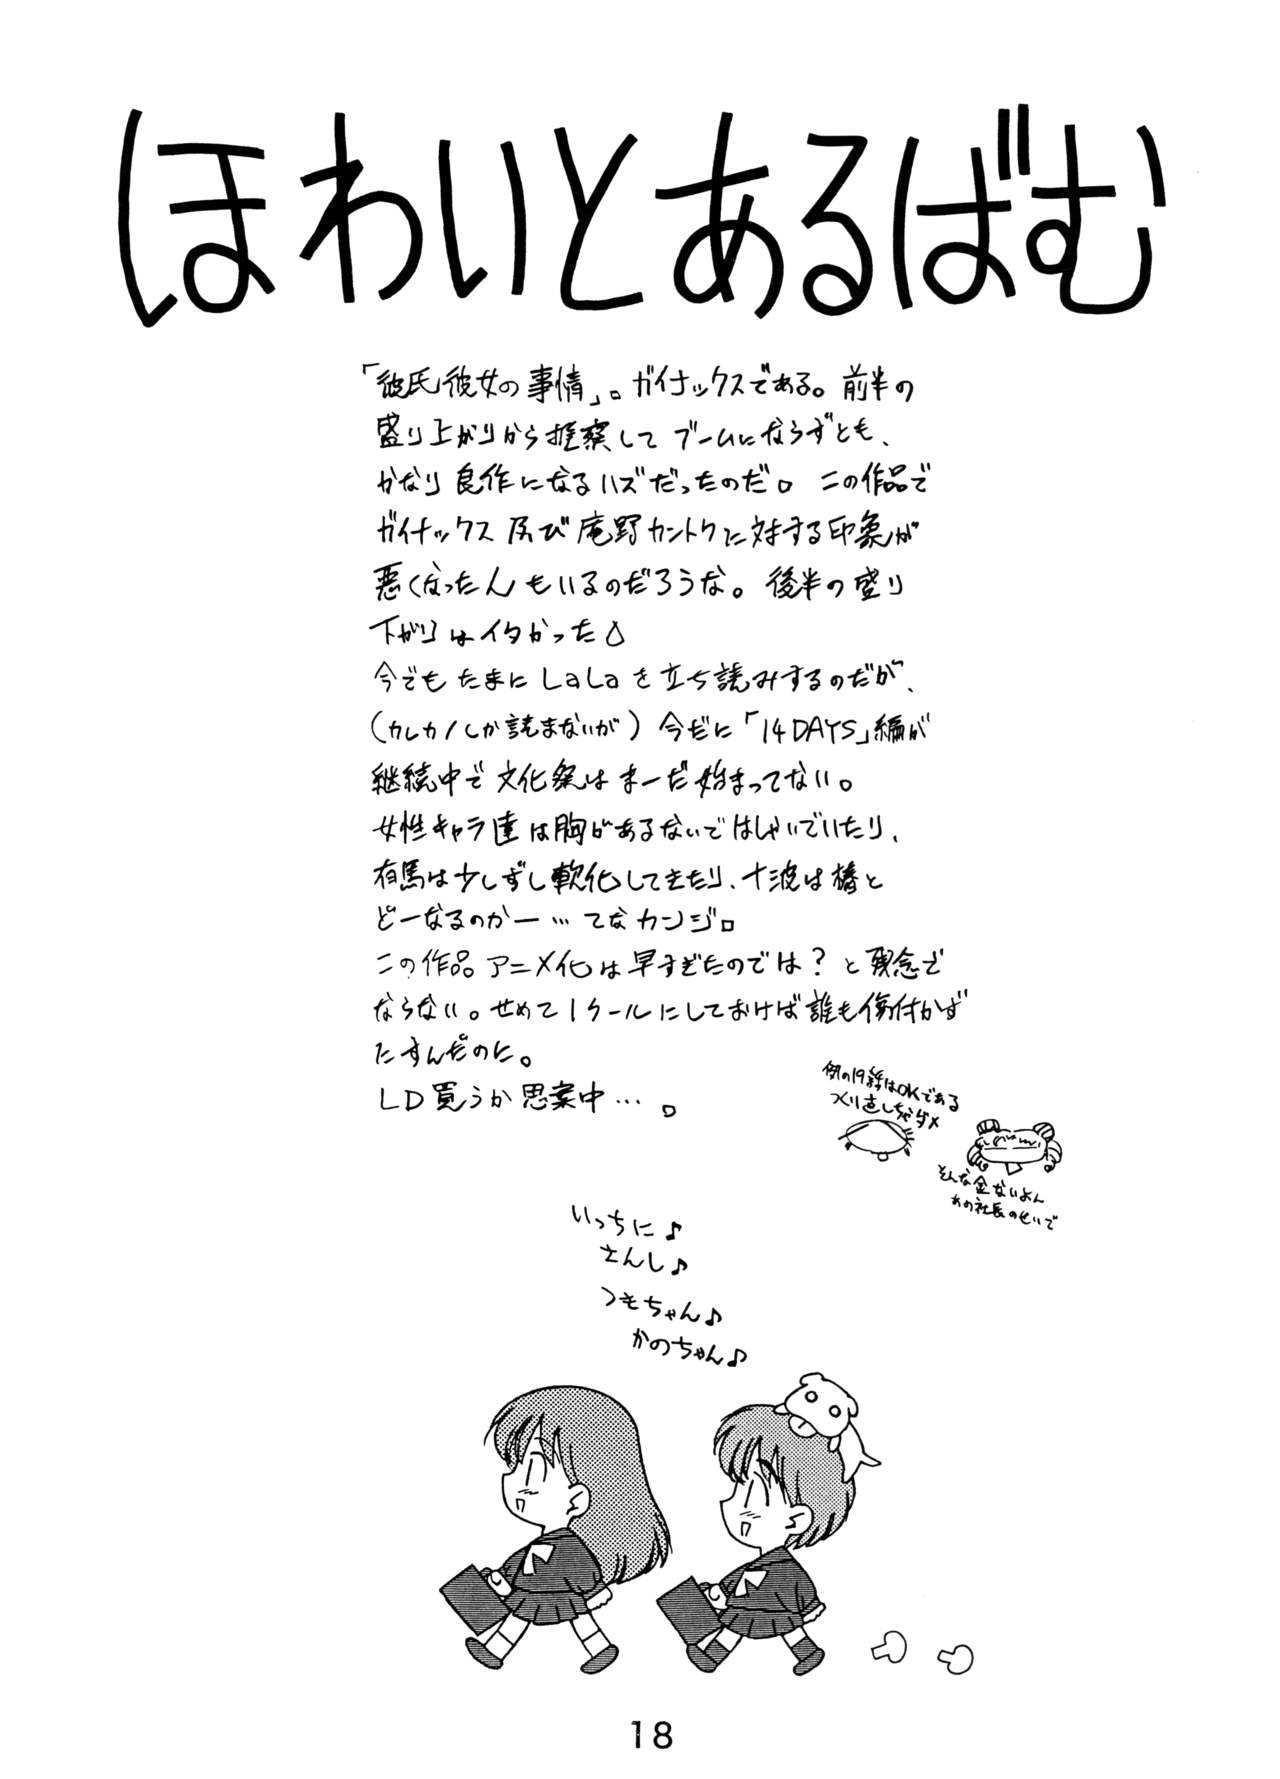 ほわいとあるばむ
「彼氏彼女の事情」。ガイナックスである。前半の
盛り上がりから推察して ブームにならずとも、
かなり良作になるハズだったのだ。この作品で
ガイナックス及び庵野カントクに対する印象が
悪くなったんもいるのだろうな。後半の盛り
下がりはイタかった。
今でもたまにLaLaを立ち読みするのだが、
（カレカノしか読まないが）今だに「14DAYS」編が
継続中で文化祭はまーだ始まってない。
女性キャラ達は胸があるないではしゃいでいたり、
有馬は少しずし軟化してきたり、十波は椿と
どーなるのかー…てなカンジ。
この作品アニメ化は早すぎたのでは？と残念で
ならない。せめて1クールにしておけば誰も傷付かず
たすんだのに。
LD買うか思案中…。
例の19話はOKである
つくり直しちゃダメ
そんな金ないよん
あの社長のせいで
いっちに♪
さんし♪
つもちゃん♪
かのちゃん♪
18